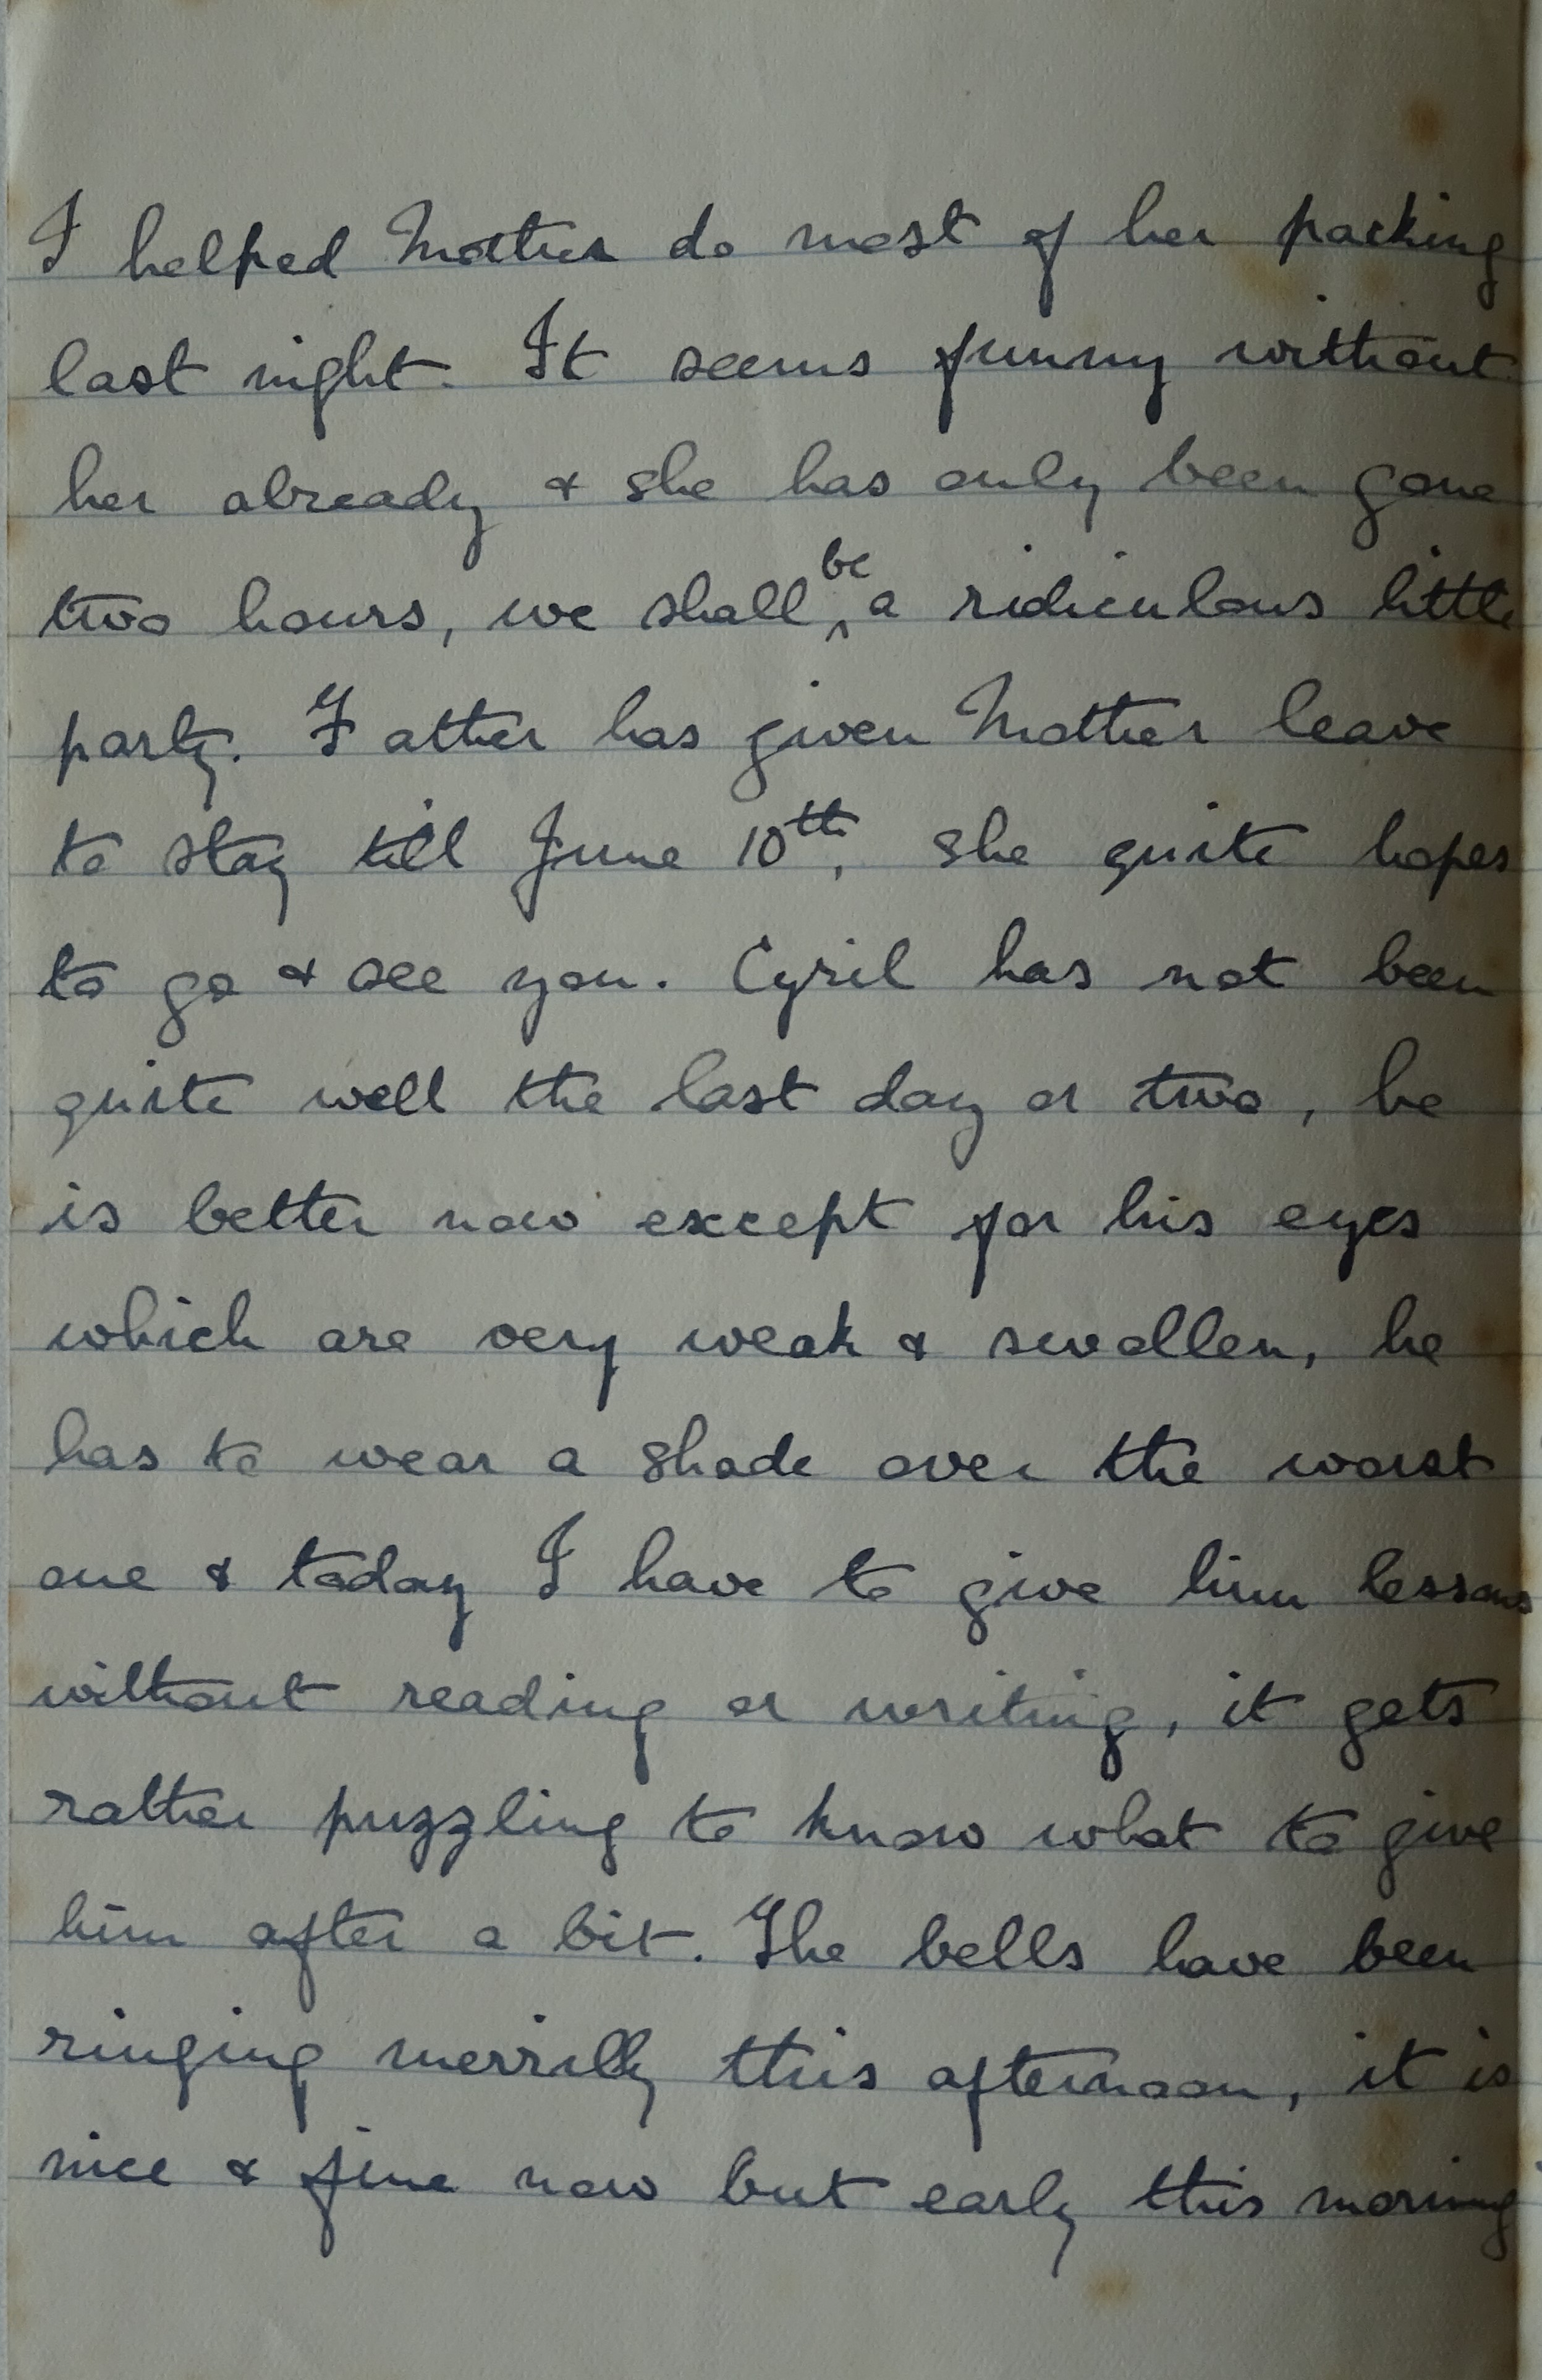 I helped Mother do most of her packing
last night. It seems funny without
her already & she has only been gone
two hours, we shall be a ridiculous little
party. Father has given Mother leave
to stay till June 10th, she quite hopes
to go & see you. Cyril has not been
quite well the last day or two, he
is better now except for his eyes
which are very weak & swollen, he
has to wear a shade over the worst
one & today I have to give him lessons
without reading or writing, it gets
rather puzzling to know what to give
him after a bit. The bells have been
ringing merrily this afternoon, it is
nice & fine now but early this morning